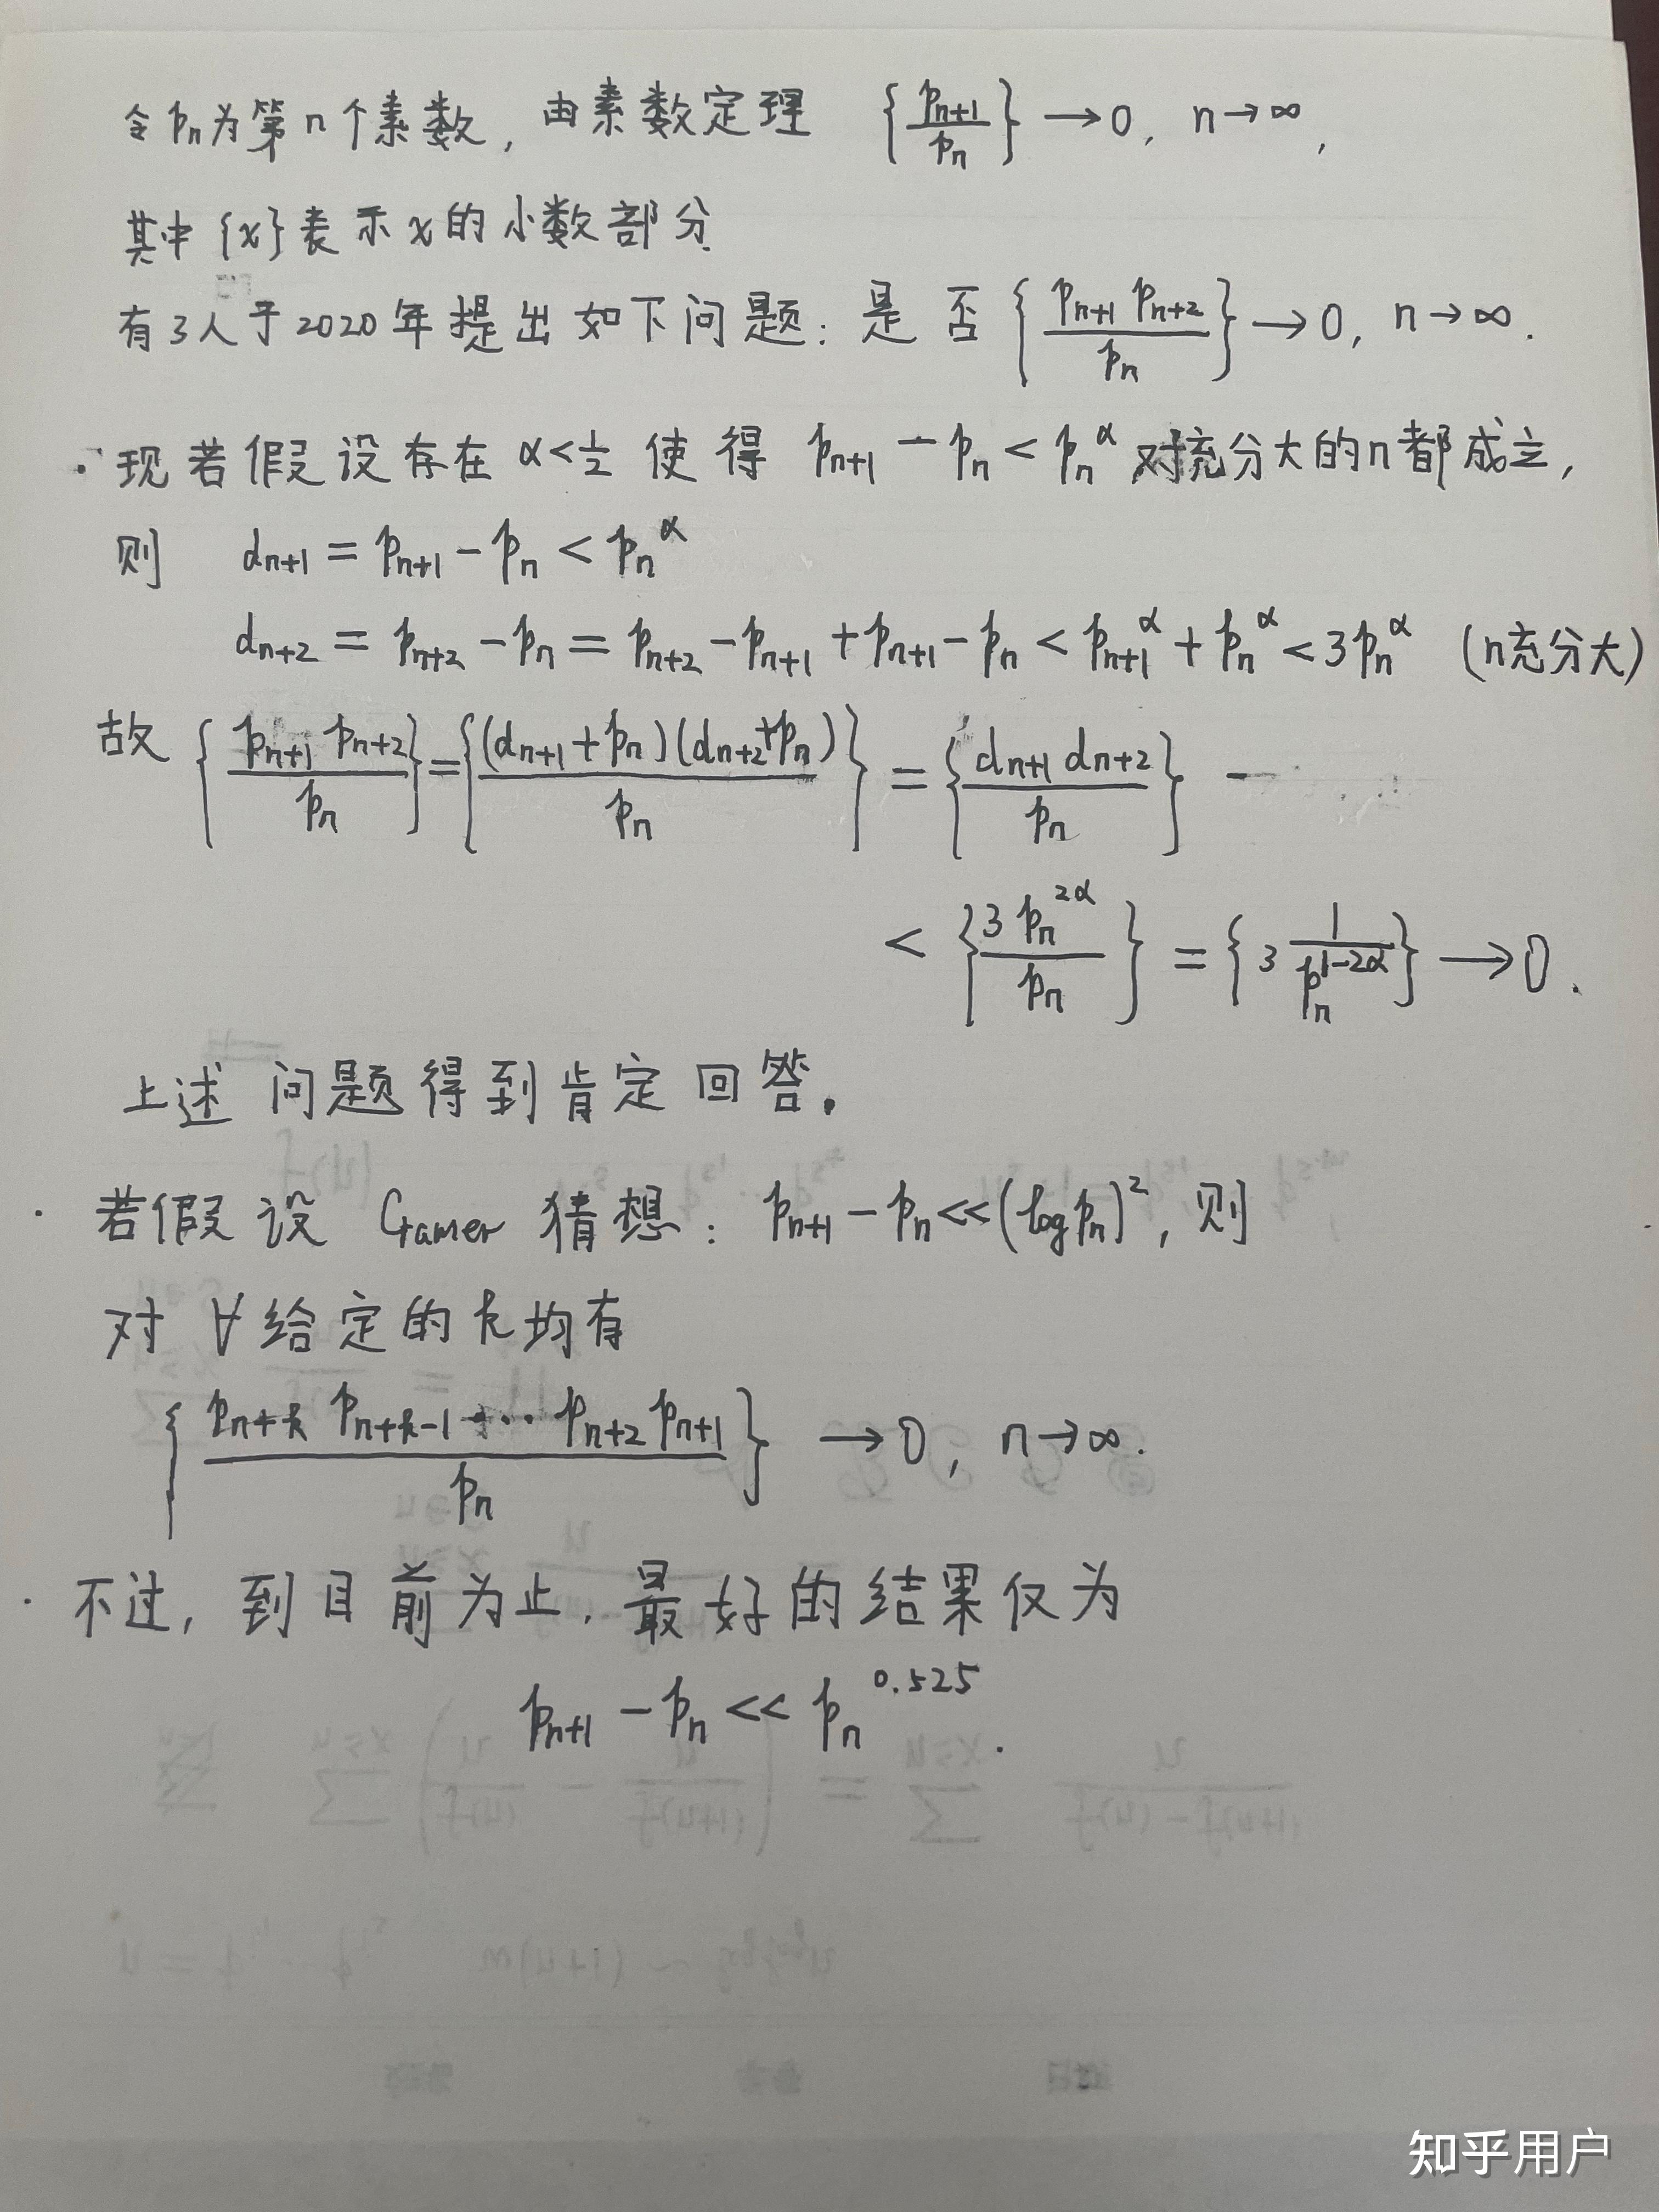 令 pₙ 为第 n 个素数, 由素数定理 {pₙ₊₁/pₙ} → 0, n→∞,
其中 {x} 表示 x 的小数部分.
有3人于2020年提出如下问题: 是否 {pₙ₊₁ pₙ₊₂/pₙ} → 0, n→∞.
· 现若假设存在 α<1/2 使得 pₙ₊₁ − pₙ < pₙ^α 对充分大的n都成立,
则 dₙ₊₁ = pₙ₊₁ − pₙ < pₙ^α
dₙ₊₂ = pₙ₊₂ − pₙ = pₙ₊₂ − pₙ₊₁ + pₙ₊₁ − pₙ < pₙ₊₁^α + pₙ^α < 3pₙ^α (n充分大)
故 {pₙ₊₁ pₙ₊₂/pₙ} = {(dₙ₊₁+pₙ)(dₙ₊₂+pₙ)/pₙ} = {dₙ₊₁ dₙ₊₂/pₙ}
< {3pₙ^2α/pₙ} = {3 1/pₙ^1−2α} → 0.
上述问题得到肯定回答.
· 若假设 Cramer 猜想: pₙ₊₁ − pₙ ≪ (log pₙ)², 则
对 ∀ 给定的 k 均有
{pₙ₊ₖ pₙ₊ₖ₋₁ ··· pₙ₊₂ pₙ₊₁/pₙ} → 0, n→∞.
· 不过, 到目前为止, 最好的结果仅为
pₙ₊₁ − pₙ ≪ pₙ^0.525.
知乎用户